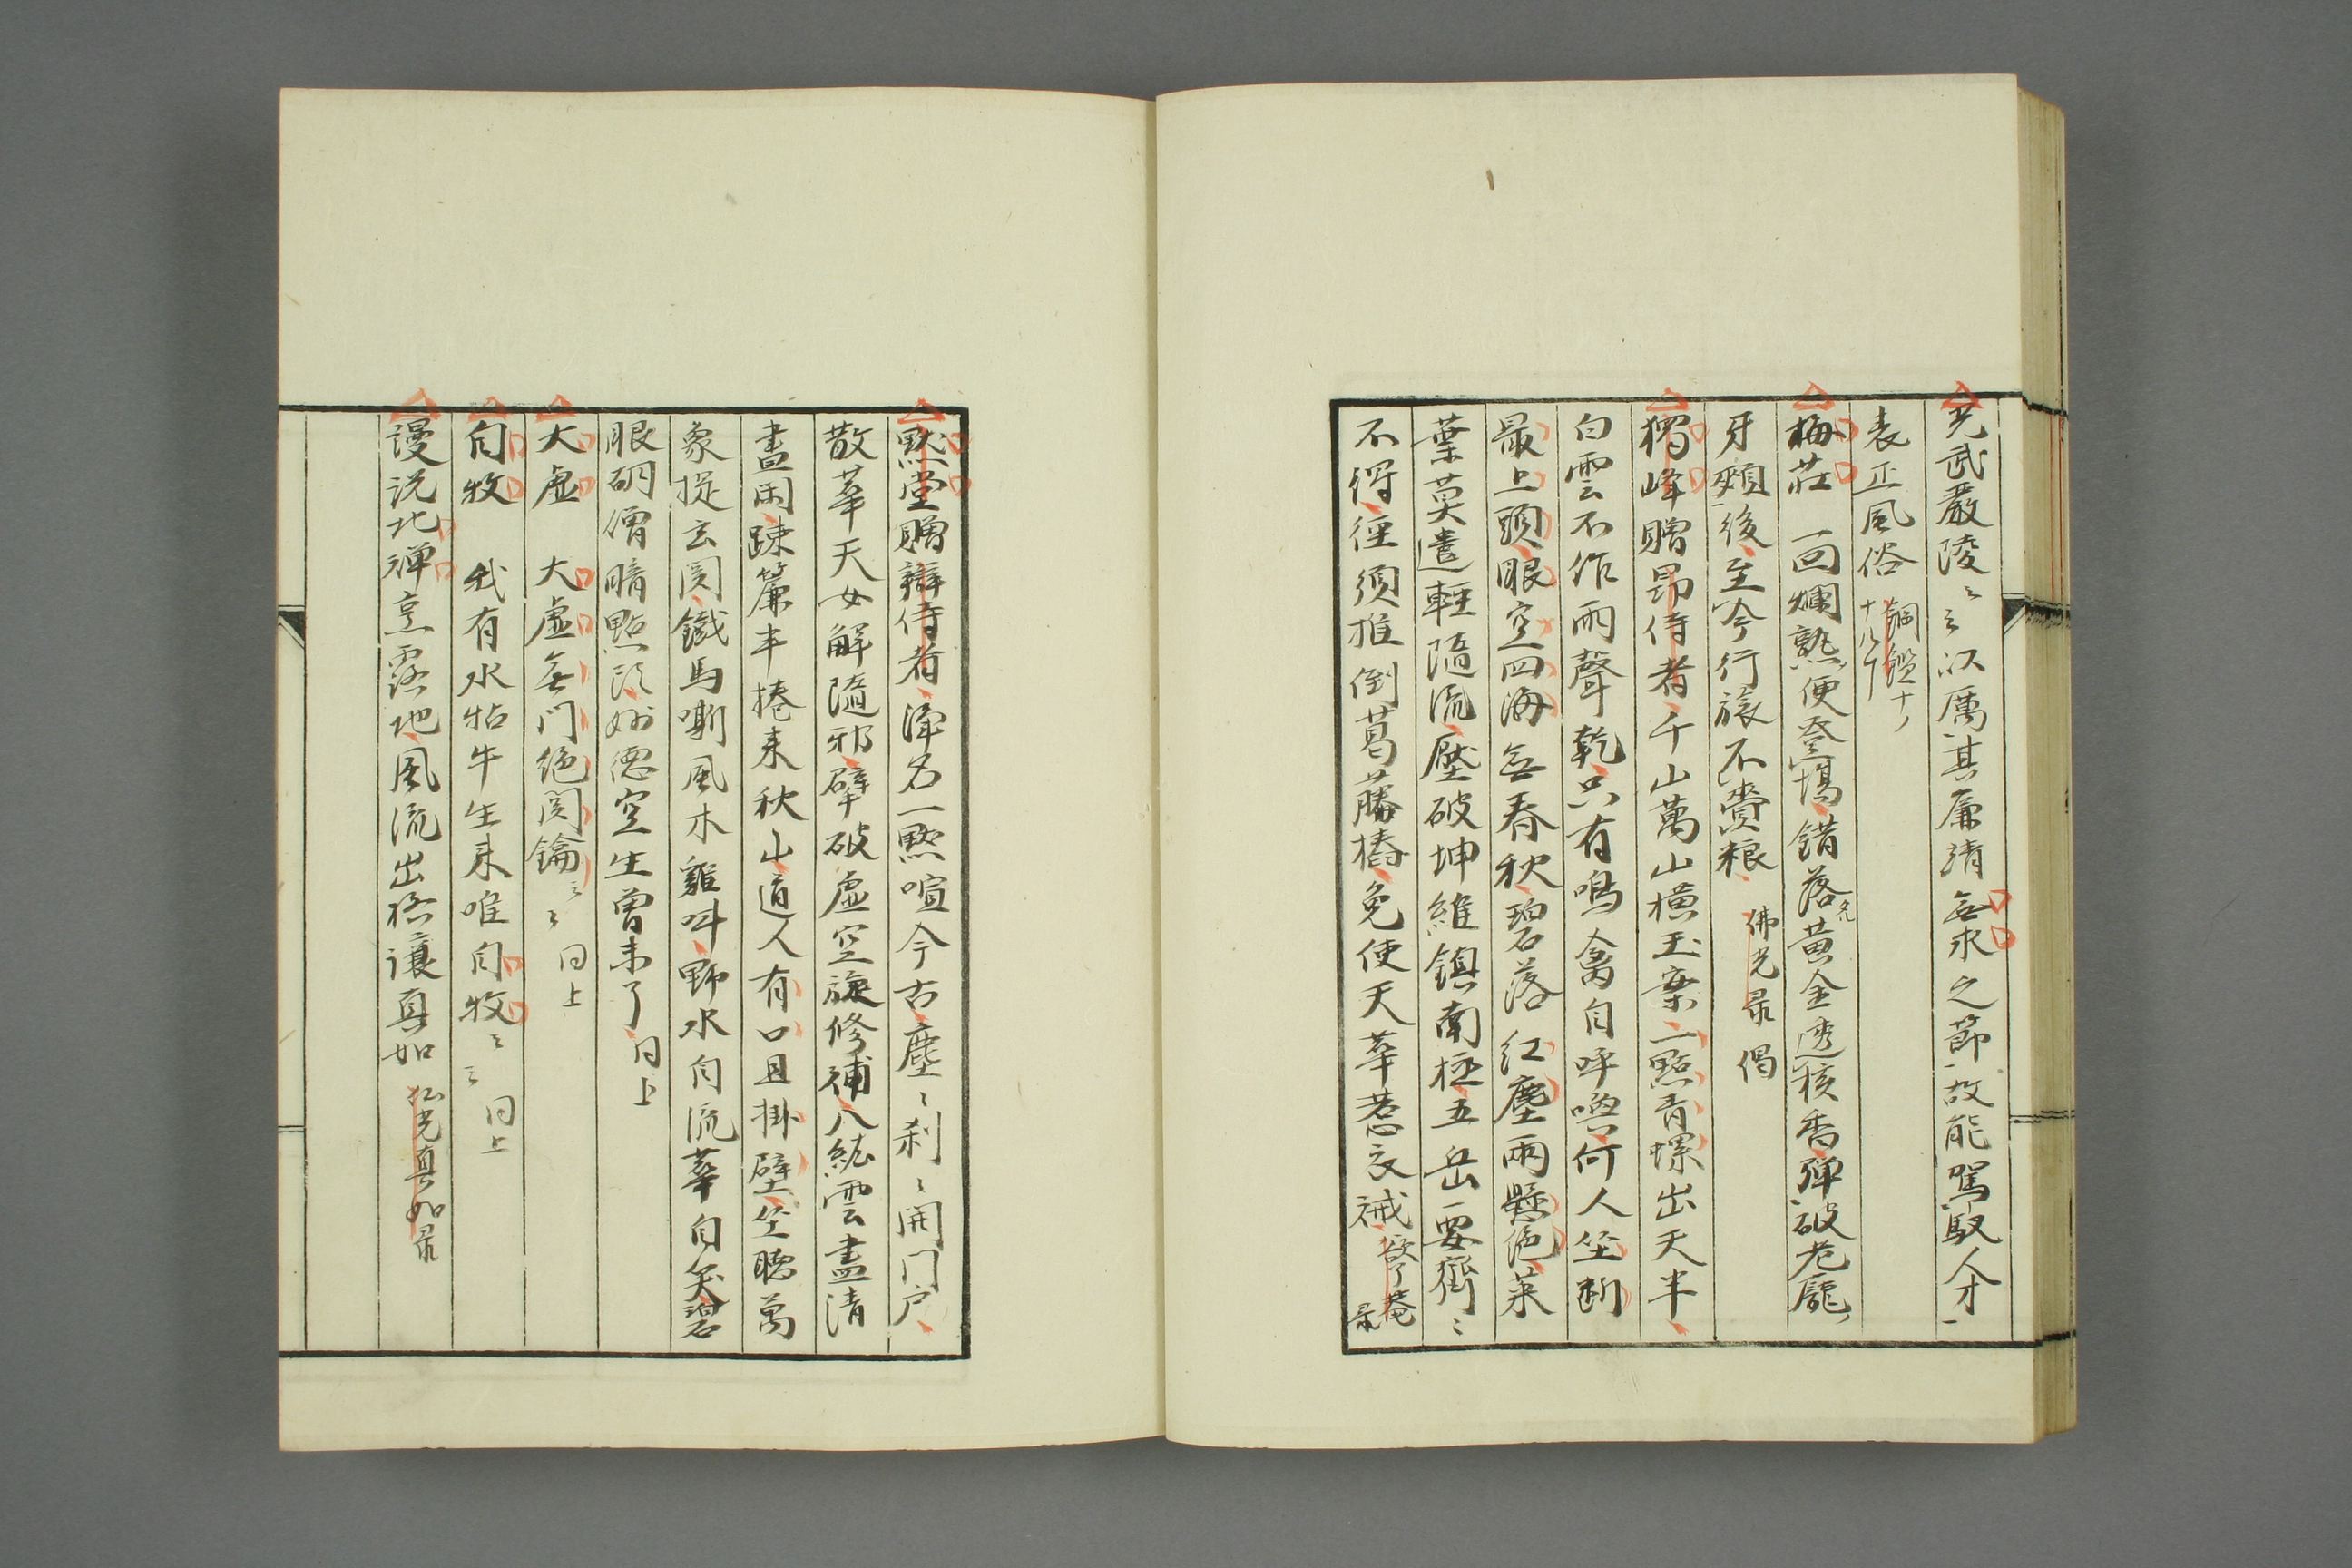 光武嚴陵〻〻以厲其廉清無求之節故能駕馭人才
表正風俗 鋼鑑十八 十八丁
梅莊 一回爛熟便登場錯落黄金透核香彈破老龐
牙頰後至今行旅不賷粮 佛光录 偈
獨峰贈昂侍者千山萬山横玉案一點青螺出天半
白雲不作雨聲乾只有鳴禽自呼喚何人坐断
最上頭眼空四海無春秋碧落紅塵兩懸絶菜
葉莫遣輕隨流壓破坤維鎮南極五岳要齊〻
不得徑須推倒葛藤樁免使天華惹衣祴 欲了菴录
黙堂贈辯侍者渾名一默喧今古塵〻刹〻開門户
散華天女解隨邪擘破虚空旋修補八紘雲盡清
晝閑疎簾半捲来秋山道人有口且掛壁坐聽萬
象提玄関鐵馬嘶風木雞叫野水自流華自笑碧
眼胡僧暗點頭妙德空生曾未了 同上
大虚 大虚無門絶関鑰〻〻 同上
自牧 我有水牯牛生来唯自牧〻〻 同上
謾説北禅烹露地風流出格讓真如 松光真如录